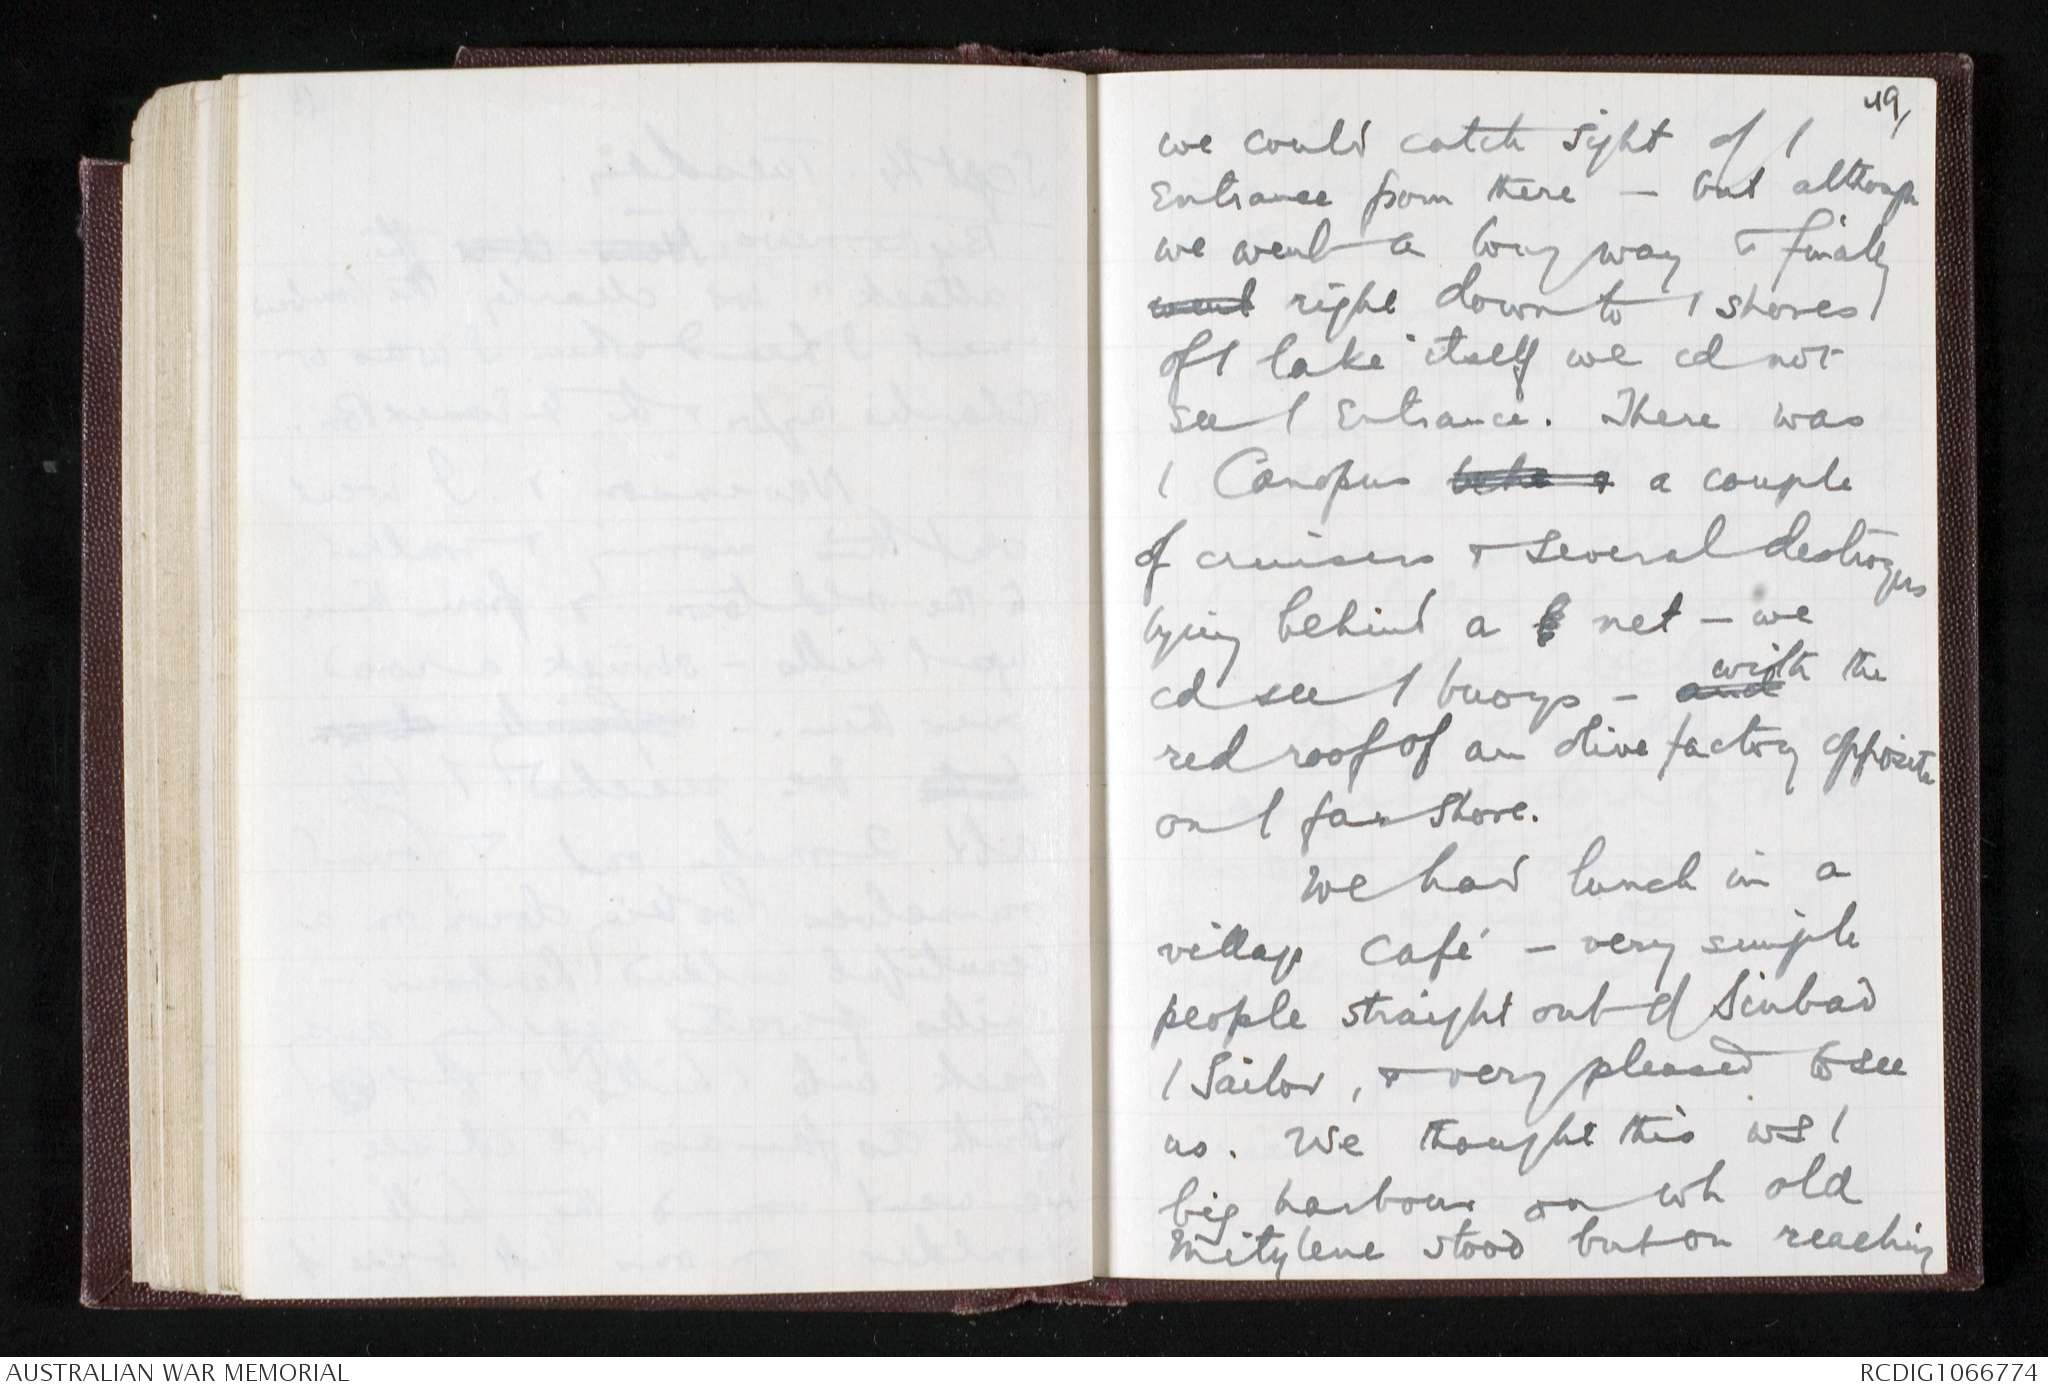 49/
we could catch sight of /
Entrance from there — but although
we went a long way & finally
went right down to / shores
of / lake itself we cd not
see / Entrance. There was
/ Canopus a couple
of cruisers & several destroyers
lying behind a net — we
cd see / buoys — and with the
red roof of an olive factory opposite
on / far shore.
We had lunch in a
village café — very simple
people straight out of Sinbad
/ Sailor, & very pleased to see
us. We thought this ws /
big harbour on wh old
Mitylene stood but on reaching
AUSTRALIAN WAR MEMORIAL
RCDIG1066774